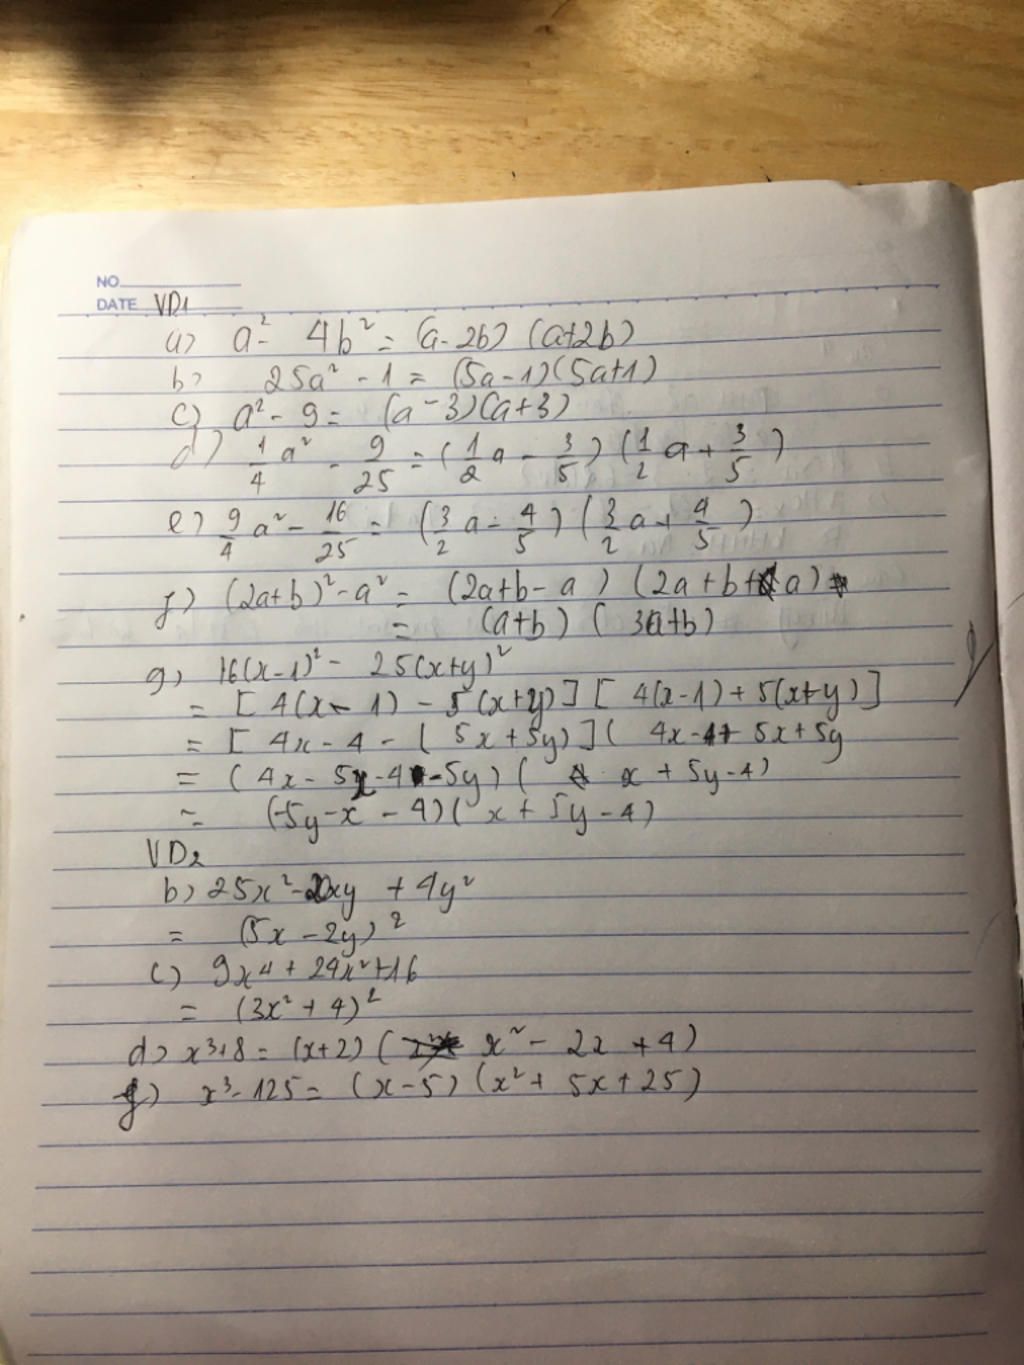 NO
DATE VD1
a) a² - 4b² = (a-2b) (a+2b)
b) 25a² - 1 = (5a-1)(5a+1)
c) a² - 9 = (a-3)(a+3)
d) 1/4 a² - 9/25 = (1/2 a - 3/5) (1/2 a + 3/5)
e) 9/4 a² - 16/25 = (3/2 a - 4/5) (3/2 a + 4/5)
f) (2a+b)² - a² = (2a+b-a) (2a+b+a)
= (a+b) (3a+b)
g) 16(x-1)² - 25(x+y)²
= [4(x-1) - 5(x+y)] [4(x-1) + 5(x+y)]
= [4x-4-(5x+5y)] (4x-4+5x+5y
= (4x-5x-4-5y) (x+5y-4)
= (-5y-x-4)(x+5y-4)
VD2
b) 25x² - 20xy + 4y²
= (5x-2y)²
c) 9x4 + 24x² + 16
= (3x²+4)²
d) x³+8 = (x+2) (x² - 2x + 4)
f) x³-125 = (x-5) (x² + 5x + 25)